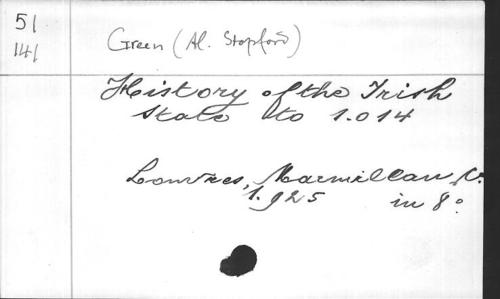 51
141
Green (Al. Stopford)
History of the Irish
State to 1.014
Londres, Macmillan C°.
1.925 in 8°